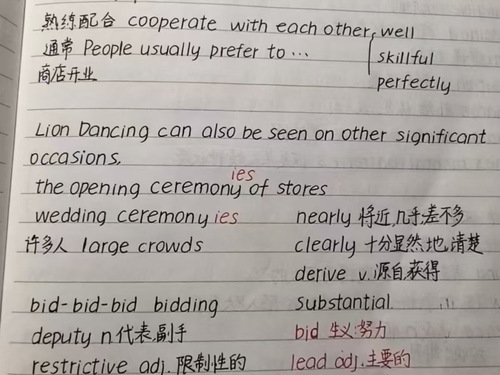 熟练配合 cooperate with each other well
skillful
perfectly
通常 People usually prefer to…
商店开业
Lion Dancing can also be seen on other significant
occasions.
the opening ceremony ies of stores
wedding ceremony ies
nearly 将近,几乎,差不多
许多人 large crowds
clearly 十分显然地,清楚
derive v.源自,获得
bid-bid-bid bidding
substantial
deputy n.代表,副手
bid 生义:努力
restrictive adj.限制性的
lead adj.主要的